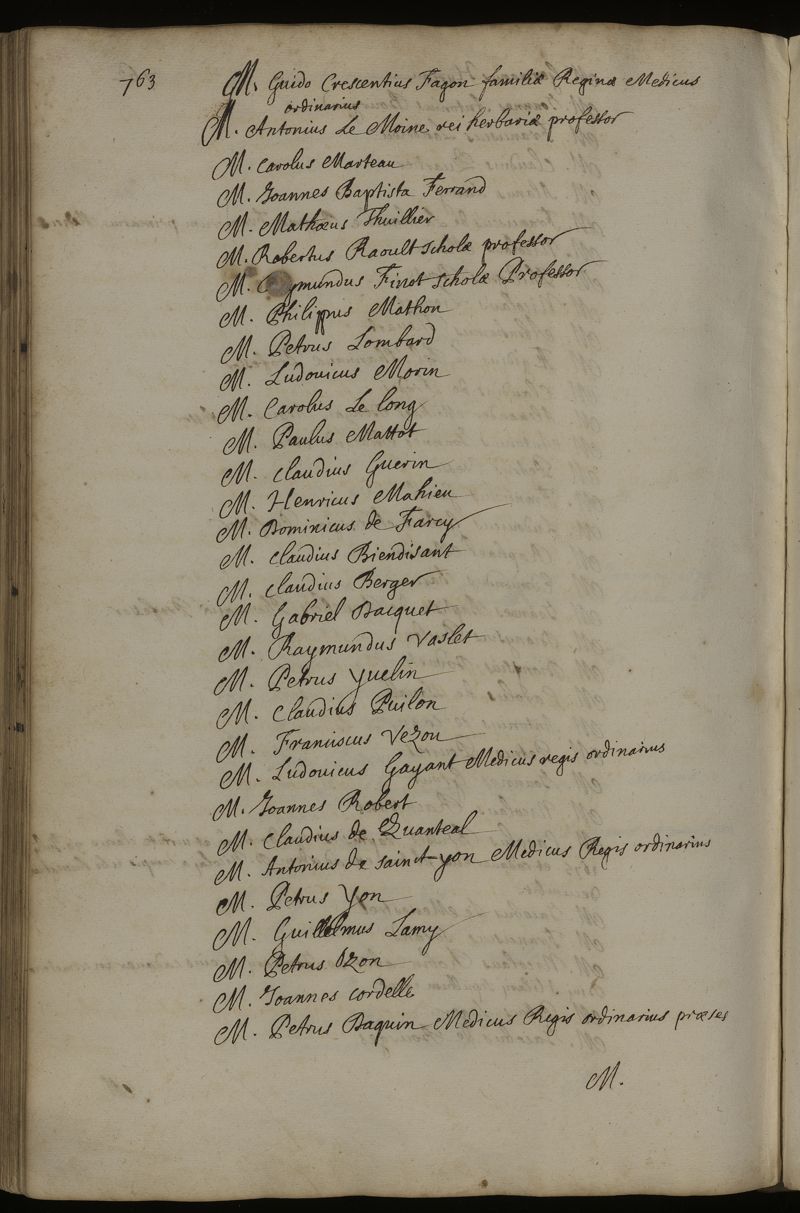 763
M. Guido Crescentius Fagon familiæ Reginæ Medicus
ordinarius
M. Antonius Le Moine rei herbariæ professor
M. Carolus Marteau
M. Joannes Baptista Ferrand
M. Mathæus Thuillier
M. Robertus Raoult scholæ professor
M. Finot scholæ Professor
M. Philippus Mathon
M. Petrus Lombard
M. Ludovicus Morin
M. Carolus Le long
M. Paulus Mattot
M. Claudius Guerin
M. Henricus Mahieu
M. Dominicus de Farcy
M. Claudius Biendisant
M. Claudius Berger
M. Gabriel Dacquet
M. Raymundus Vaslet
M. Petrus Yuelin
M. Claudius Puilon
M. Franciscus Vezou
M. Ludovicus Gayant Medicus regis ordinarius
M. Joannes Robert
M. Claudius de Quanteal
M. Antonius de sainct-yon Medicus Regis ordinarius
M. Petrus Yon
M. Guillelmus Lamy
M. Petrus Ozon
M. Joannes Cordelle
M. Petrus Daquin Medicus Regis ordinarius præses
M.